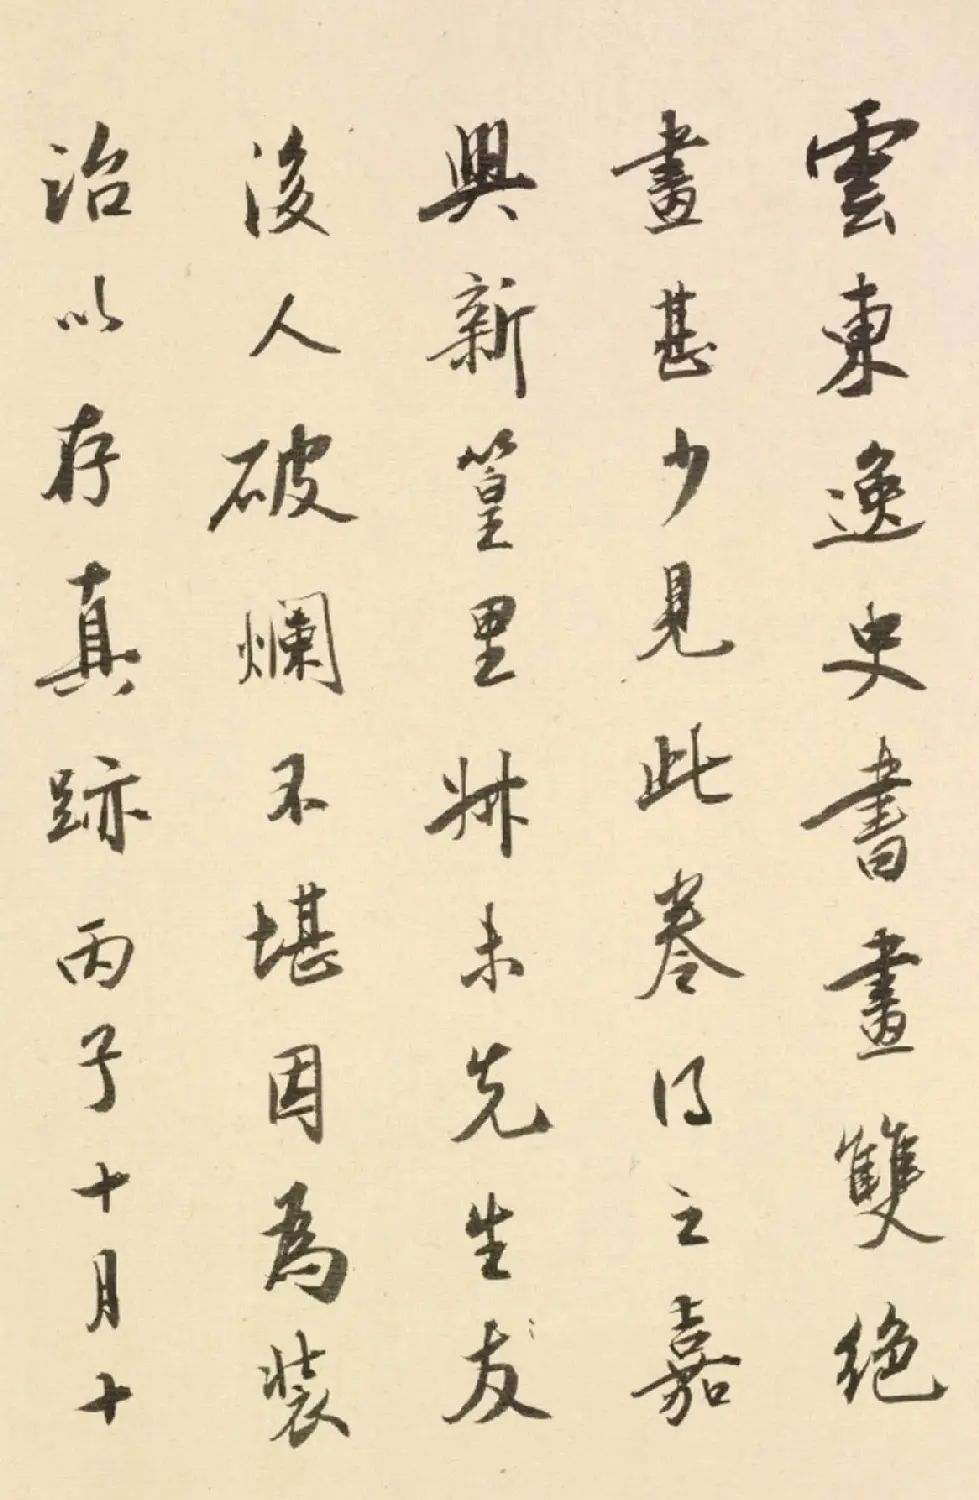 雲東逸史書畫雙絕
畫甚少見此卷得之嘉
興新篁里叔未先生友
後人破爛不堪因為裝
治以存真跡丙子十月十